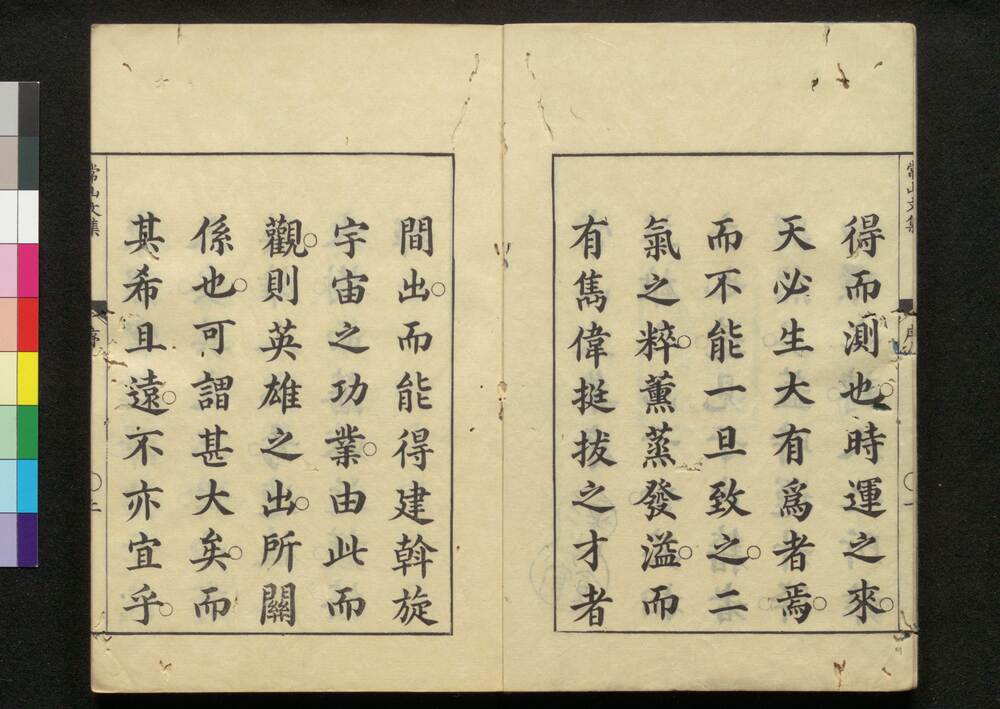 得而測也。時運之來。
天必生大有爲者焉。
而不能一旦致之。二
氣之粹。薰蒸發溢。而
有雋偉挺拔之才者
間出。而能得建斡旋
宇宙之功業。由此而
觀。則英雄之出。所關
係也。可謂甚大矣。而
其希且遠。不亦宜乎。
常山文集
序